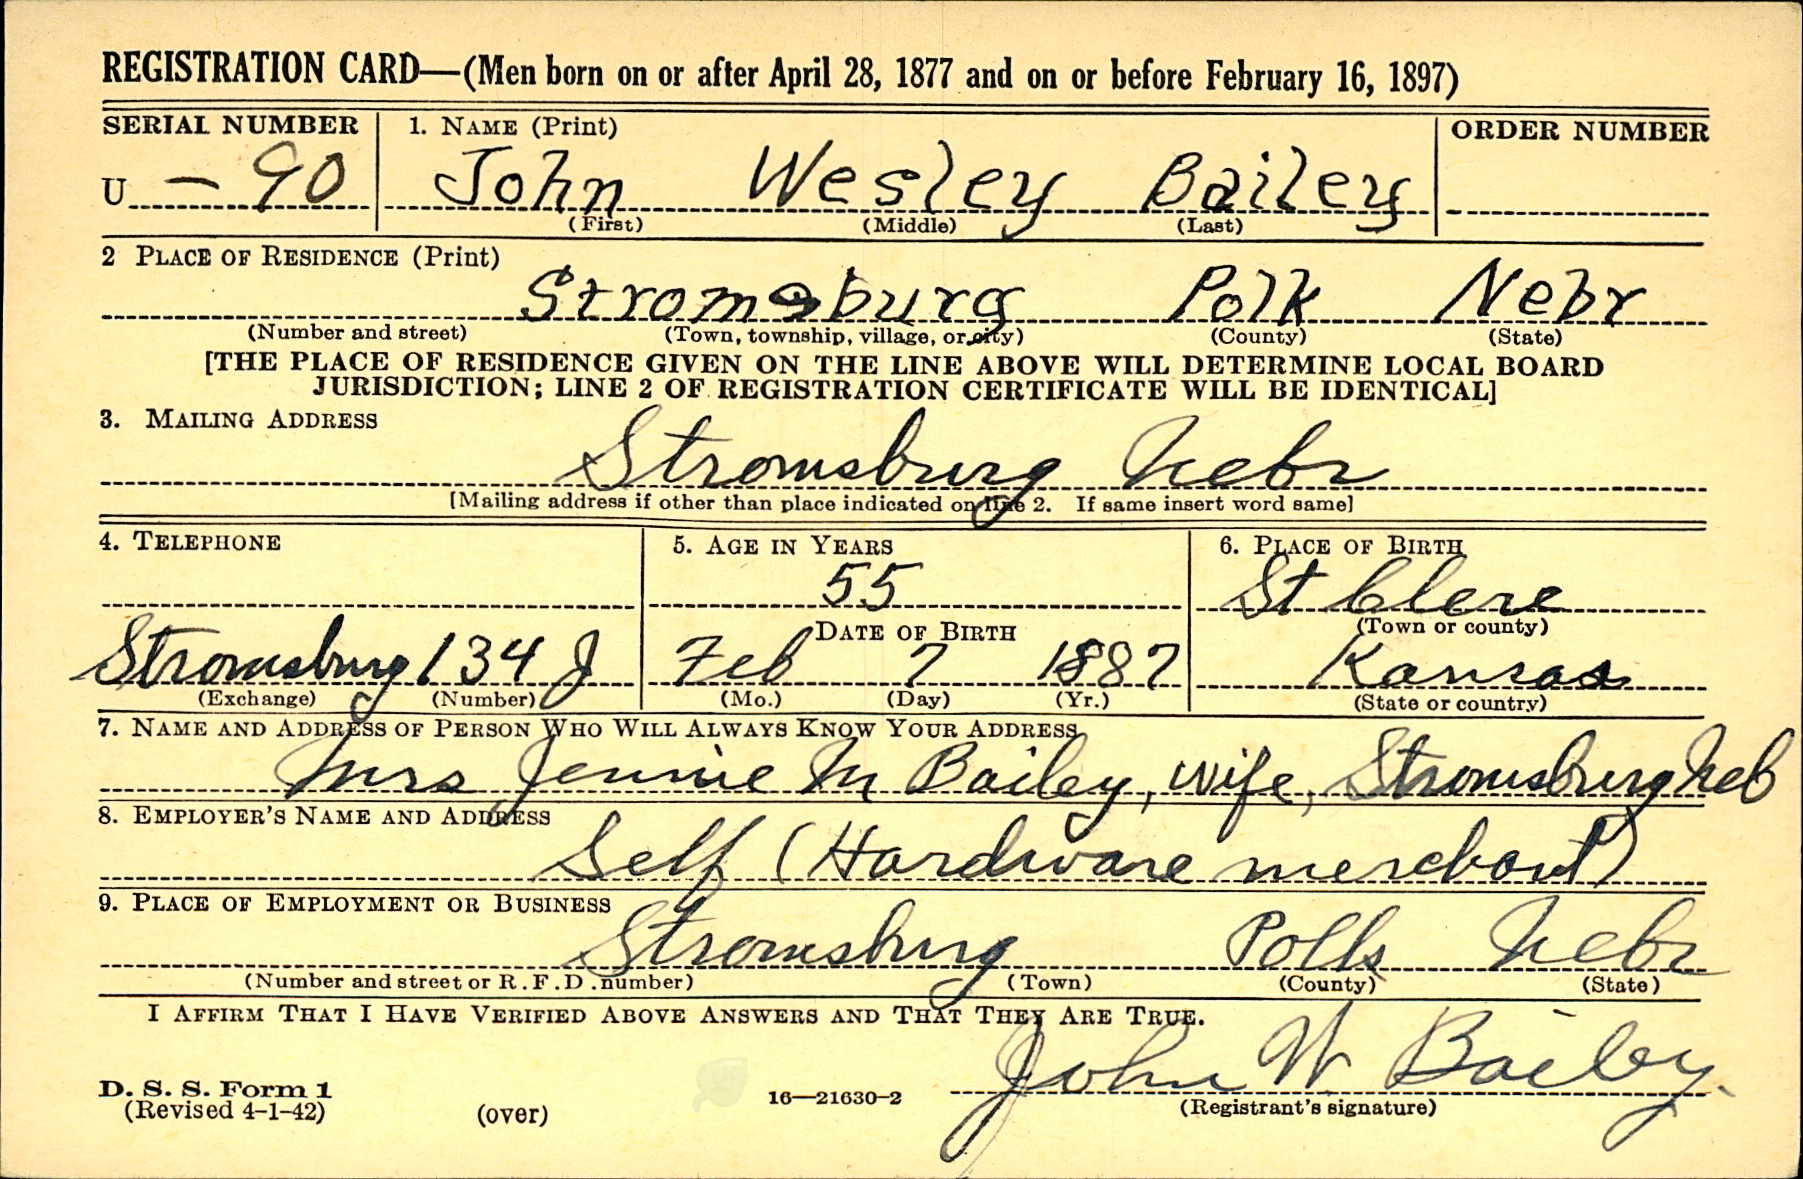 REGISTRATION CARD—(Men born on or after April 28, 1877 and on or before February 16, 1897)
SERIAL NUMBER 1. NAME (Print) ORDER NUMBER
U – 90 John Wesley Bailey
(First) (Middle) (Last)
2 PLACE OF RESIDENCE (Print)
Stromsburg Polk Nebr
(Number and street) (Town, township, village, or city) (County) (State)
[THE PLACE OF RESIDENCE GIVEN ON THE LINE ABOVE WILL DETERMINE LOCAL BOARD
JURISDICTION; LINE 2 OF REGISTRATION CERTIFICATE WILL BE IDENTICAL]
3. MAILING ADDRESS
Stromsburg Nebr
[Mailing address if other than place indicated on line 2. If same insert word same]
4. TELEPHONE 5. AGE IN YEARS 6. PLACE OF BIRTH
55 St Clere
DATE OF BIRTH (Town or county)
Stromsburg 134 J Feb 7 1887 Kansas
(Exchange) (Number) (Mo.) (Day) (Yr.) (State or country)
7. NAME AND ADDRESS OF PERSON WHO WILL ALWAYS KNOW YOUR ADDRESS
Mrs Jennie M Bailey, wife, Stromsburg Neb
8. EMPLOYER'S NAME AND ADDRESS
Self (Hardware merchant)
9. PLACE OF EMPLOYMENT OR BUSINESS
Stromsburg Polk Nebr
(Number and street or R.F.D. number) (Town) (County) (State)
I AFFIRM THAT I HAVE VERIFIED ABOVE ANSWERS AND THAT THEY ARE TRUE.
John W Bailey.
D. S. S. Form 1
(Revised 4-1-42) (over) 16—21630-2 (Registrant's signature)